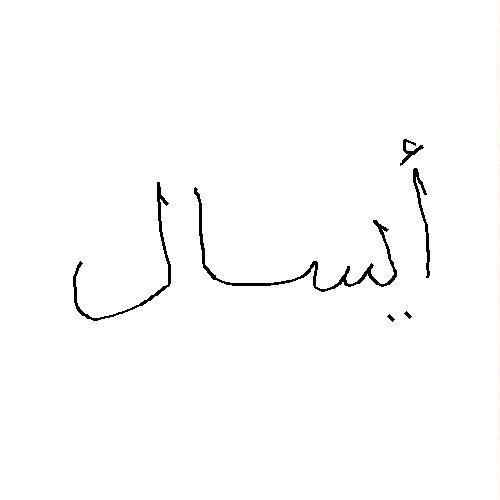 أيسال